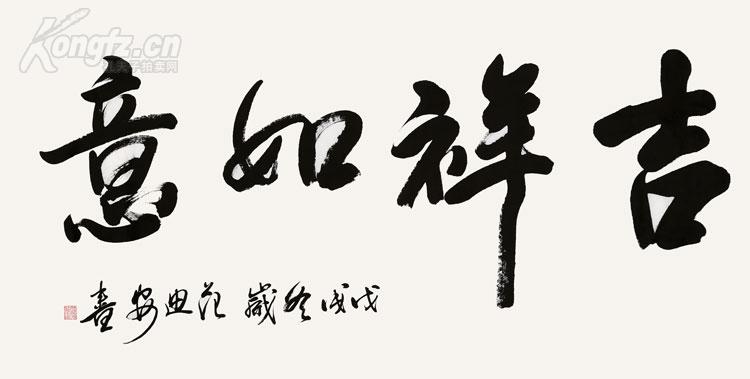 Kongfz.cn
孔夫子拍卖网
吉祥如意
戊戌冬歲 范迪安書